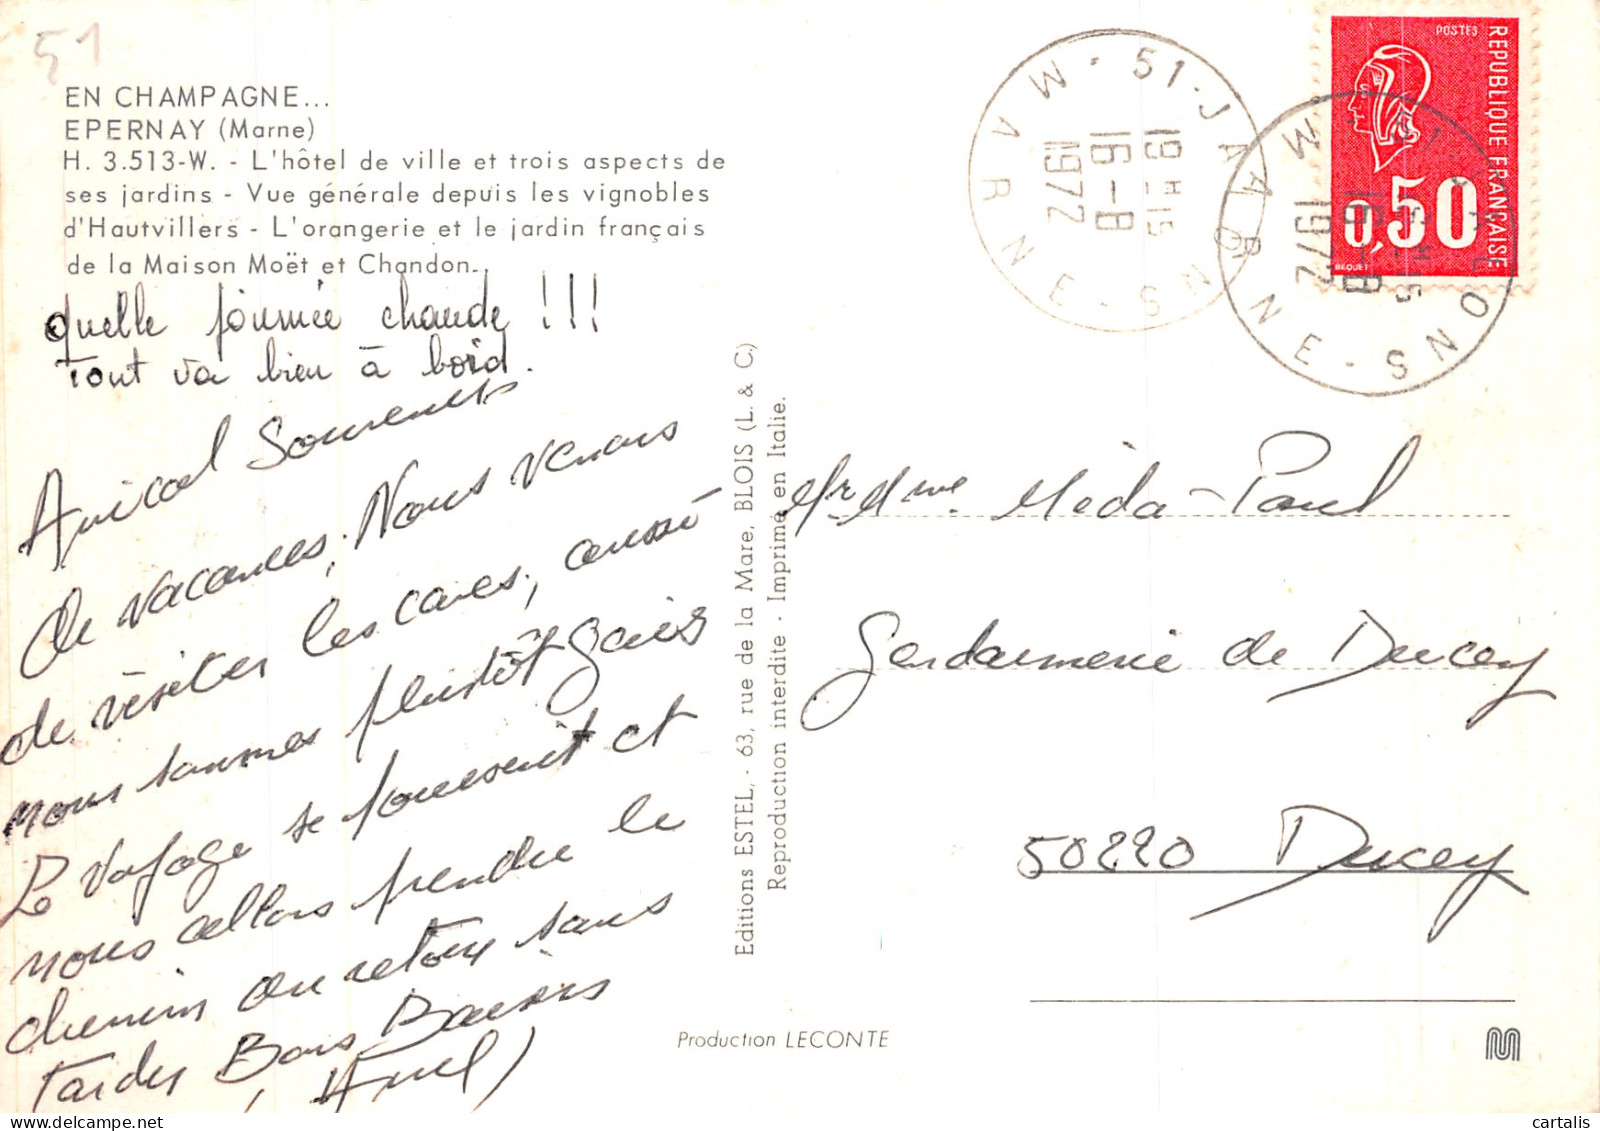 51
EN CHAMPAGNE...
EPERNAY (Marne)
H. 3.513-W. - L'hôtel de ville et trois aspects de
ses jardins - Vue générale depuis les vignobles
d'Hautvillers - L'orangerie et le jardin français
de la Maison Moët et Chandon.
quelle journée chaude !!!
Tout va bien à bord.
Amical Souvenir
de vacances. Nous venons
de visiter les caves, aussi
nous sommes plutôt gais
Le voyage se poursuit et
nous allons prendre le
chemin du retour sans
tarder Bons Baisers
Editions ESTEL, - 63, rue de la Mare, BLOIS (L. & C.)
Reproduction interdite - Imprimé en Italie.
Production LECONTE
51-JAALONS-S-MARNE
19H15
16-8
1972
POSTES
REPUBLIQUE FRANÇAISE
0,50
BEQUET
19H15
16-8
1972
Mr Mme Méda Paul
Gendarmerie de Ducey
50220 Ducey
cartalis